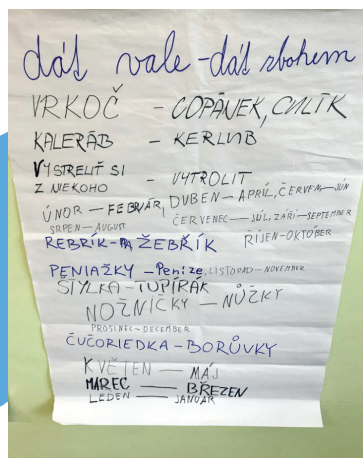 dáť vale - dáť sbohem
VRKOČ - COPÁNEK, CULÍK
KALERÁB - KERLUB
VYSTRELIŤ SI
Z NIEKOHO - VYTROLIT
ÚNOR — FEBRUÁR, DUBEN — APRÍL, ČERVEN — JÚN
SRPEN — AUGUST ČERVENEC — JÚL, ZÁŘÍ — SEPTEMBER
REBRÍK - ŽEBŘÍK ŘÍJEN - OKTÓBER
PENIAŽKY - Peníze, LISTOPAD - NOVEMBER
ŠTYLKA - TUPÍRÁK
NOŽNIČKY — NŮŽKY
PROSINEC - DECEMBER
ČUČORIEDKA - BORŮVKY
KVĚTEN — MÁJ
MAREC — BŘEZEN
LEDEN — JANUÁR